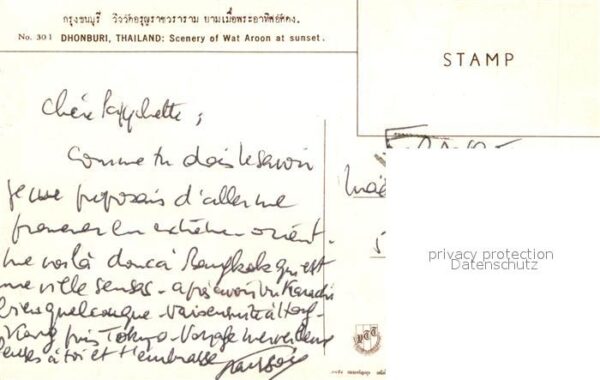 กรุงธนบุรี วิววัดอรุณราชวราราม ยามเมื่อพระอาทิตย์ตกดง.
No. 301 DHONBURI, THAILAND: Scenery of Wat Aroon at sunset.
STAMP
Chère
Comme tu dois le savoir
je me proposais d'aller me
promener en extrême-orient.
me voilà donc à Bangkok qui est
une ville sensas - après avoir vu Karachi
bien quelconque - vais ensuite à Hong
Kong puis Tokyo - Voyage merveilleux
penses à toi et t'embrasse
privacy protection
Datenschutz